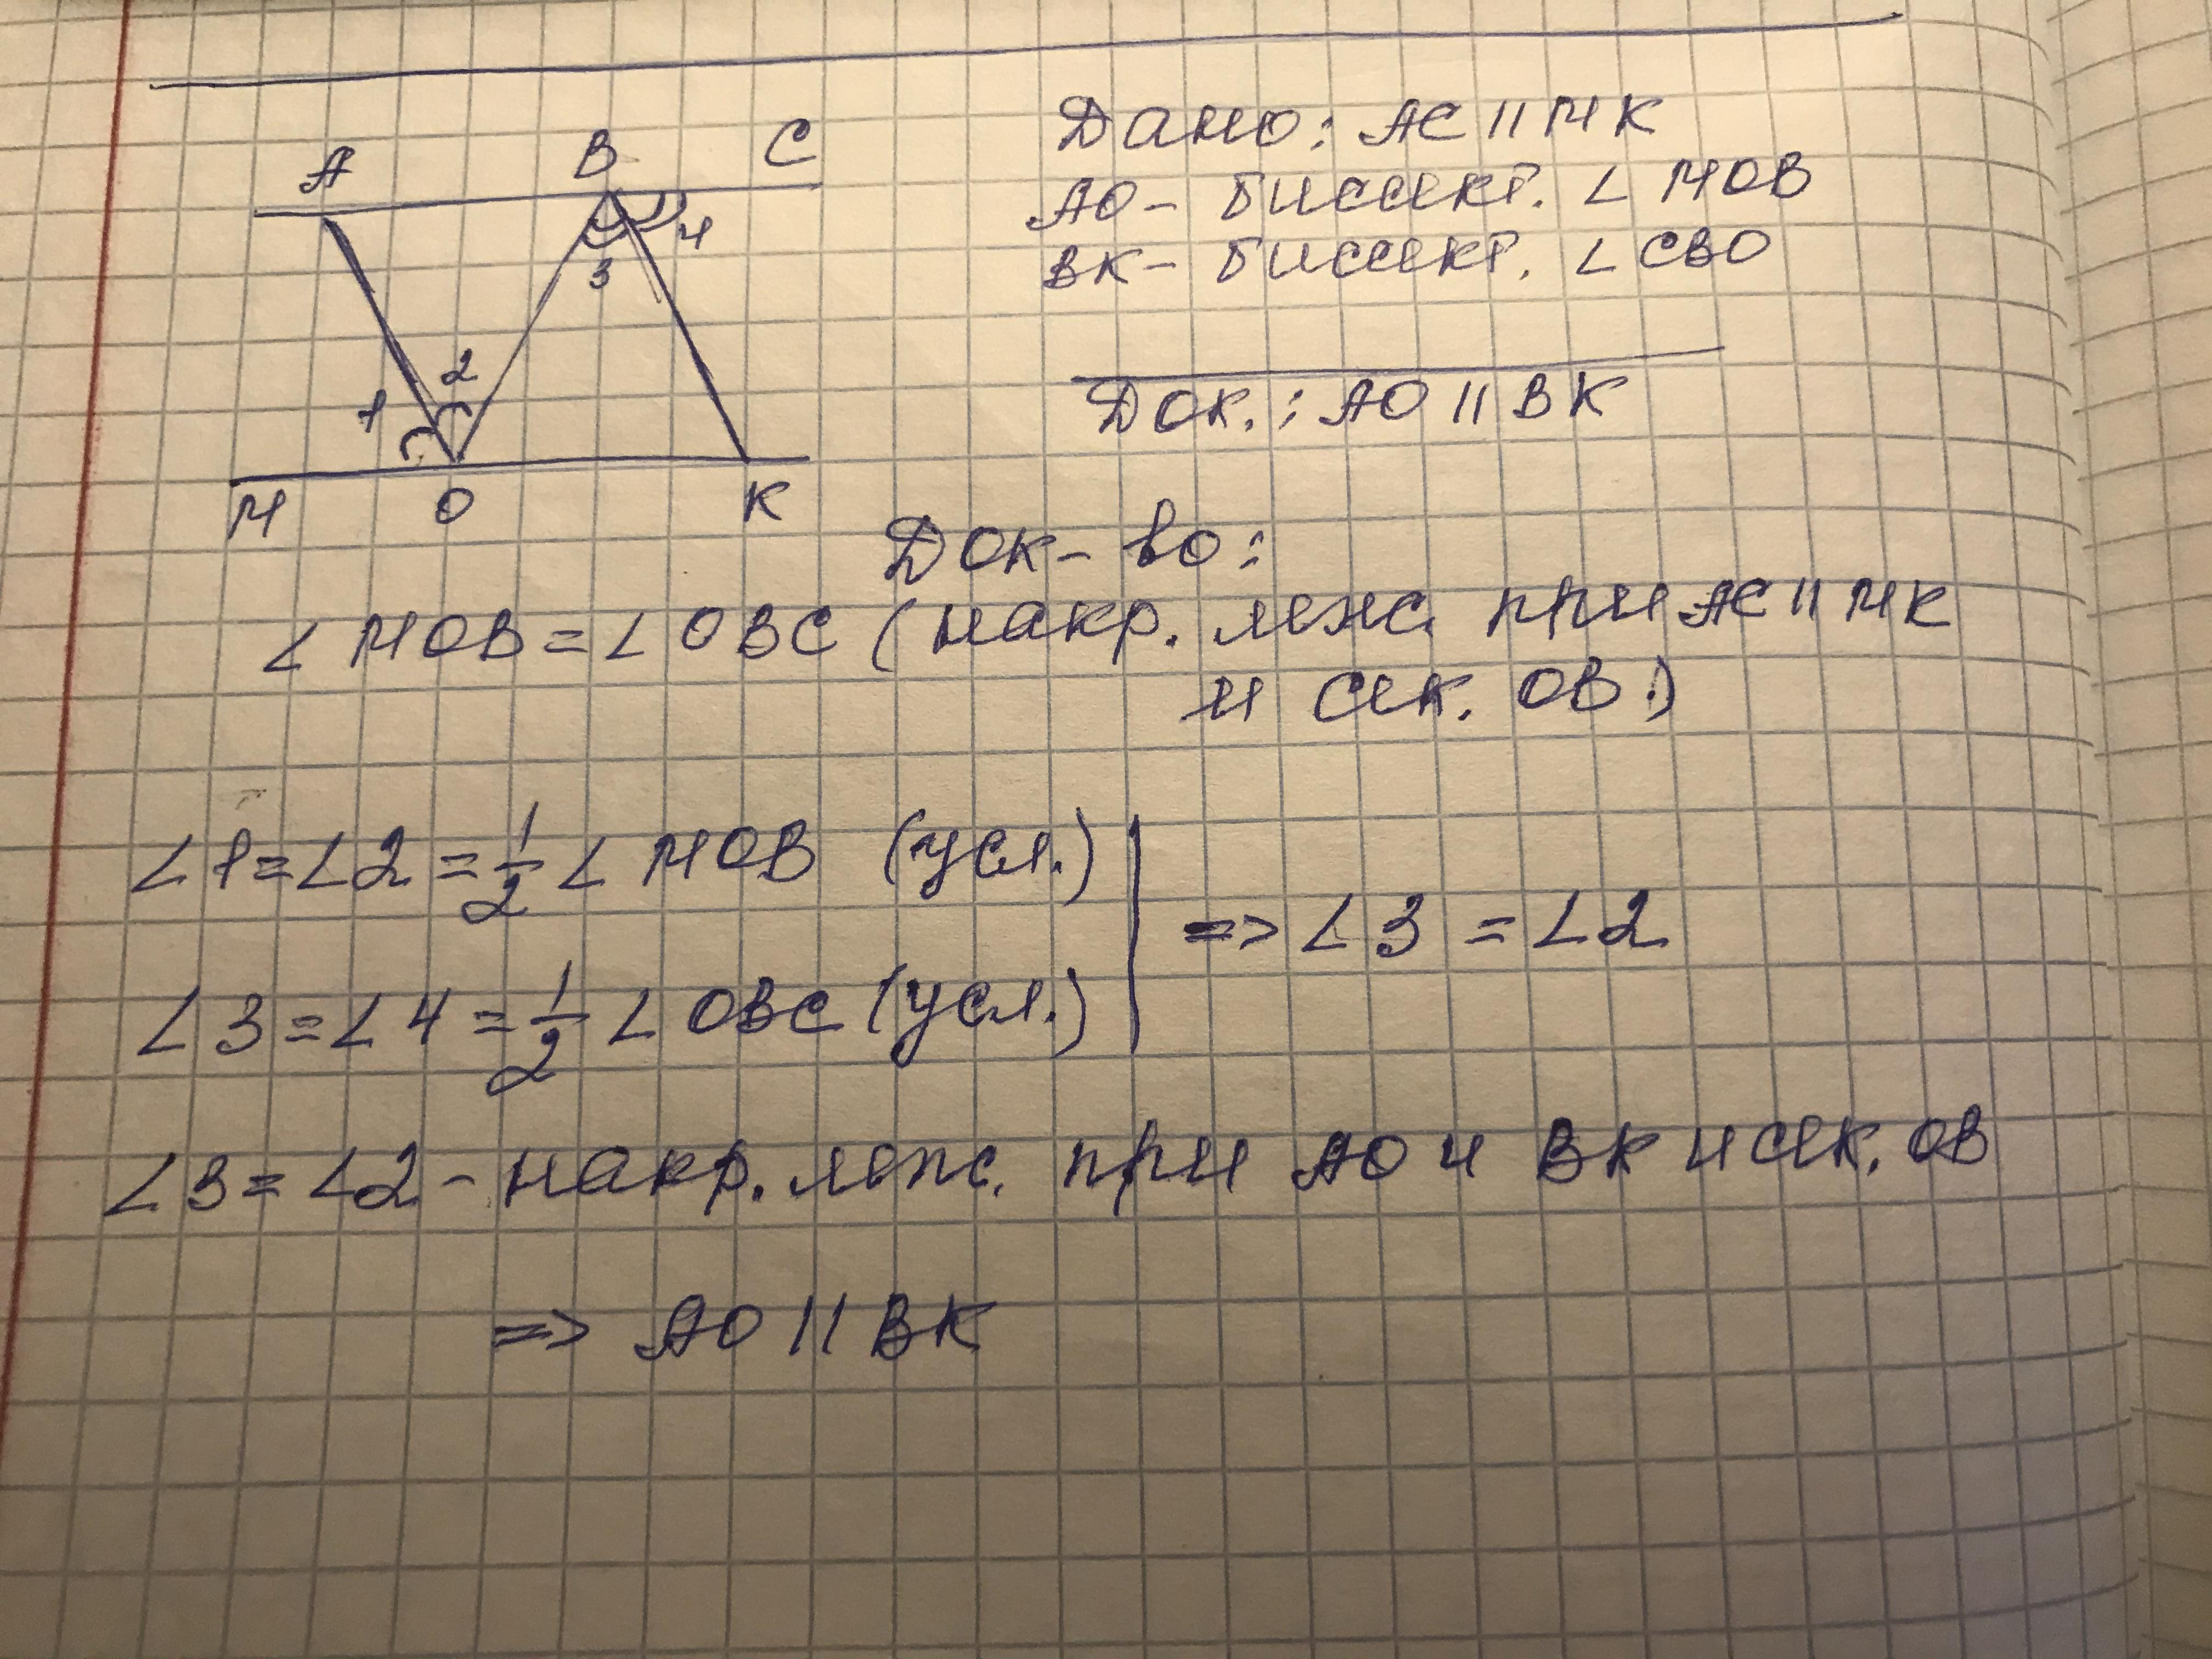 A B C
Дано: AC || MK
AO - биссект. ∠ MOB
BK - биссект. ∠ CBO
4
3
2
1
Док.: AO || BK
M O K
Док-во:
∠ MOB = ∠ OBC (накр. леж. при AC || MK
и сек. OB.)
∠1 = ∠2 = 1/2 ∠ MOB (усл.)
=> ∠3 = ∠2
∠3 = ∠4 = 1/2 ∠ OBC (усл.)
∠3 = ∠2 - накр. леж. при AO и BK и сек. OB
=> AO || BK